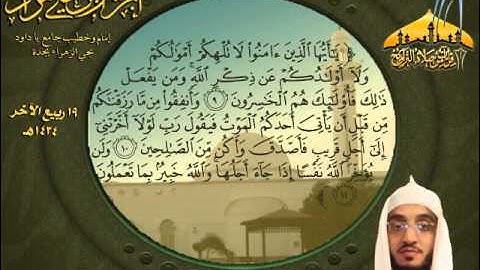 إمام وخطيب جامع با داود
بحي الزهراء بجدة
١٩ ربيع الآخر
١٤٣٤هـ
يَٰٓأَيُّهَا ٱلَّذِينَ ءَامَنُوا۟ لَا تُلْهِكُمْ أَمْوَٰلُكُمْ
وَلَآ أَوْلَٰدُكُمْ عَن ذِكْرِ ٱللَّهِ وَمَن يَفْعَلْ
ذَٰلِكَ فَأُو۟لَٰٓئِكَ هُمُ ٱلْخَٰسِرُونَ ٩ وَأَنفِقُوا۟ مِن مَّا رَزَقْنَٰكُم
مِّن قَبْلِ أَن يَأْتِىَ أَحَدَكُمُ ٱلْمَوْتُ فَيَقُولَ رَبِّ لَوْلَآ أَخَّرْتَنِىٓ
إِلَىٰٓ أَجَلٍ قَرِيبٍ فَأَصَّدَّقَ وَأَكُن مِّنَ ٱلصَّٰلِحِينَ ١٠ وَلَن
يُؤَخِّرَ ٱللَّهُ نَفْسًا إِذَا جَآءَ أَجَلُهَا وَٱللَّهُ خَبِيرٌۢ بِمَا تَعْمَلُونَ
١١